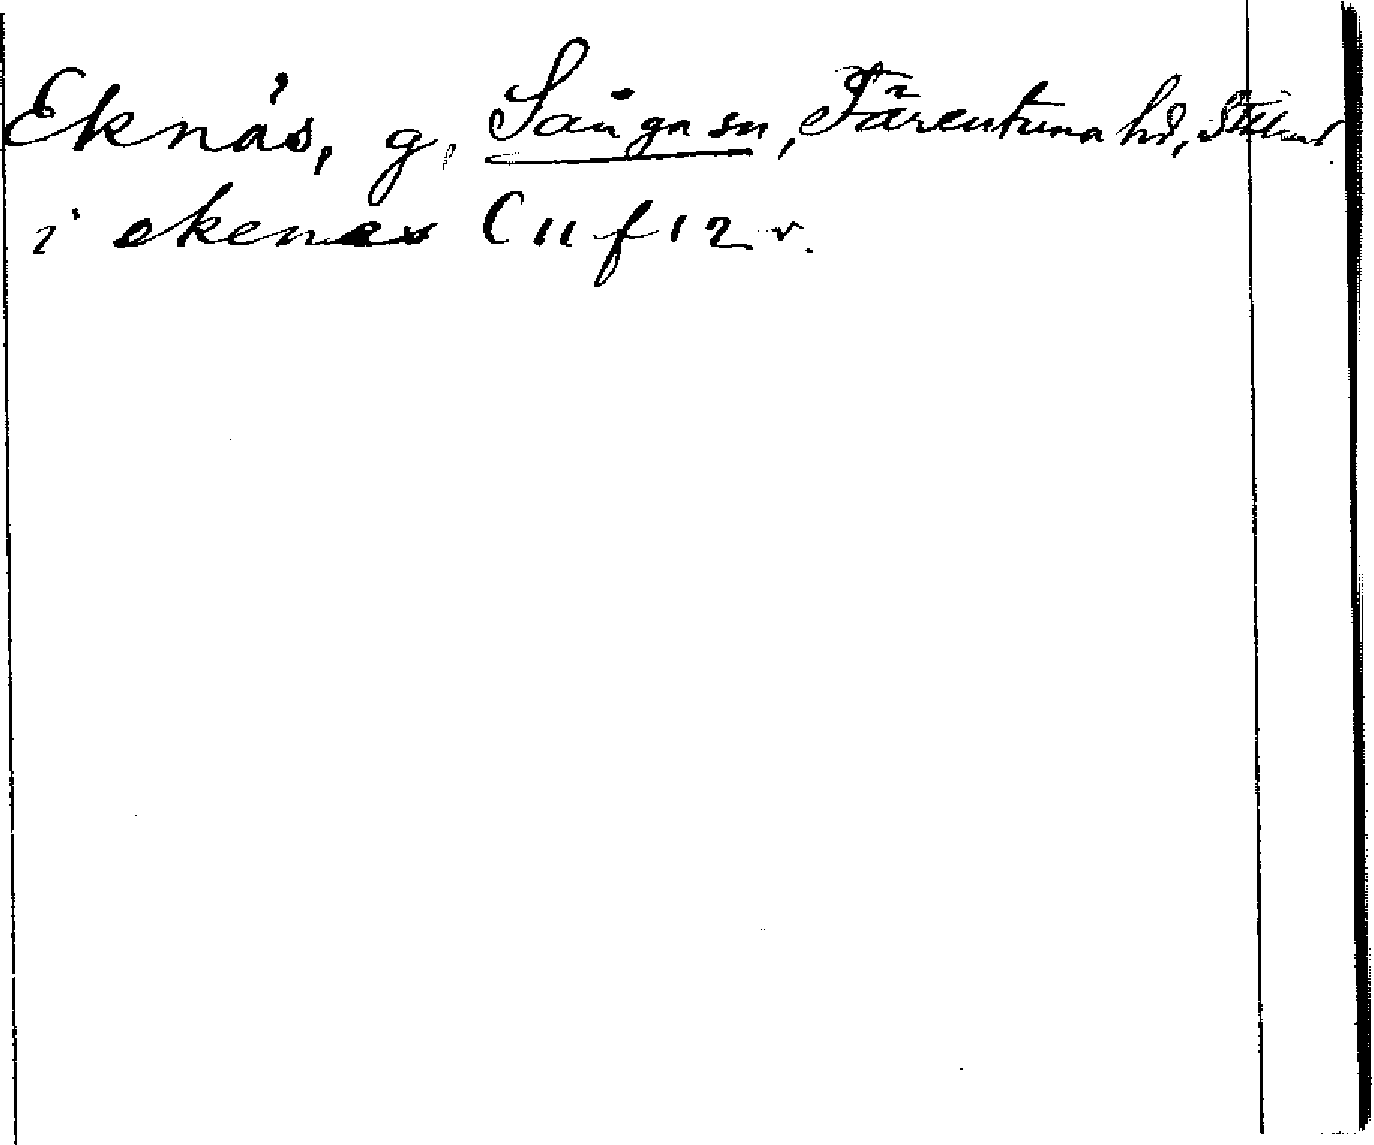 Eknäs, g, Sånga sn, Färentuna hd, Sthlms
i ekenes C 11 f 12 v.